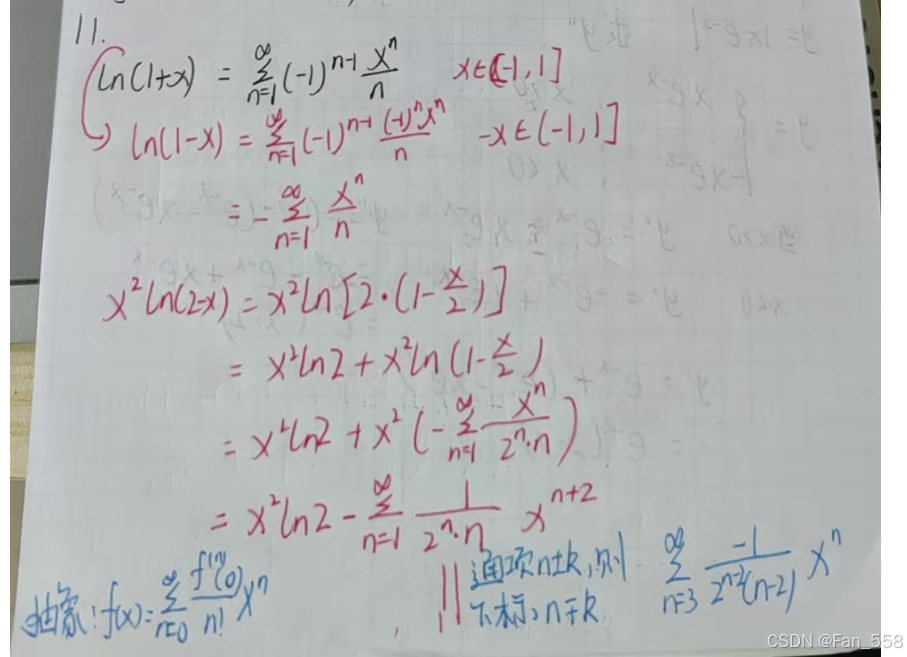 11.
ln(1+x) = ∑_{n=1}^{∞} (-1)^{n-1} x^n/n   x∈(-1,1]
ln(1-x) = ∑_{n=1}^{∞} (-1)^{n-1} (-1)^n x^n/n   -x∈(-1,1]
= -∑_{n=1}^{∞} x^n/n
x²ln(2-x) = x²ln[2·(1-x/2)]
= x²ln2 + x²ln(1-x/2)
= x²ln2 + x²(-∑_{n=1}^{∞} x^n/(2^n·n))
= x²ln2 - ∑_{n=1}^{∞} 1/(2^n·n) x^{n+2}
抽象: f(x)=∑_{n=0}^{∞} f^{(n)}(0)/n! x^n
通项n±k,则
下标,n∓k
∑_{n=3}^{∞} -1/(2^{n-2}(n-2)) x^n
CSDN @Fan_558